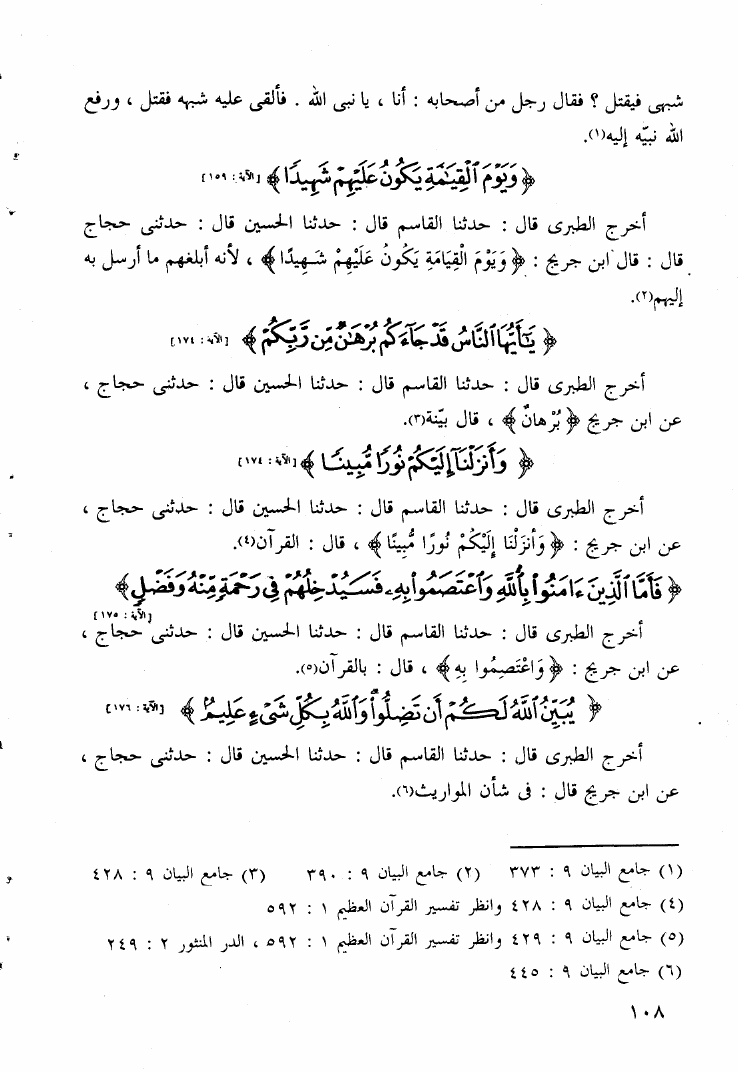 شبهى فيقتل ؟ فقال رجل من أصحابه : أنا ، يا نبى الله . فألقى عليه شبهه فقتل ، ورفع
الله نبيّه إليه(١).
﴿ وَيَوْمَ ٱلْقِيَٰمَةِ يَكُونُ عَلَيْهِمْ شَهِيدًا ﴾ [الآية : ١٥٩]
أخرج الطبرى قال : حدثنا القاسم قال : حدثنا الحسين قال : حدثنى حجاج
قال : قال ابن جريج : ﴿ وَيَوْمَ الْقِيَامَةِ يَكُونُ عَلَيْهِمْ شَهِيدًا ﴾ ، لأنه أبلغهم ما أرسل به
إليهم(٢).
﴿ يَٰٓأَيُّهَا ٱلنَّاسُ قَدْ جَآءَكُم بُرْهَٰنٌ مِّن رَّبِّكُمْ ﴾ [الآية : ١٧٤]
أخرج الطبرى قال : حدثنا القاسم قال : حدثنا الحسين قال : حدثنى حجاج ،
عن ابن جريج ﴿ بُرْهانٌ ﴾ ، قال بيّنة(٣).
﴿ وَأَنزَلْنَآ إِلَيْكُمْ نُورًا مُّبِينًا ﴾ [الآية : ١٧٤]
أخرج الطبرى قال : حدثنا القاسم قال : حدثنا الحسين قال : حدثنى حجاج ،
عن ابن جريج : ﴿ وَأَنزَلْنَا إِلَيْكُمْ نُورًا مُّبِينًا ﴾ ، قال : القرآن(٤).
﴿ فَأَمَّا ٱلَّذِينَ ءَامَنُوا۟ بِٱللَّهِ وَٱعْتَصَمُوا۟ بِهِۦ فَسَيُدْخِلُهُمْ فِى رَحْمَةٍ مِّنْهُ وَفَضْلٍ ﴾
[الآية : ١٧٥]
أخرج الطبرى قال : حدثنا القاسم قال : حدثنا الحسين قال : حدثنى حجاج ،
عن ابن جريج : ﴿ وَاعْتَصِمُوا بِهِ ﴾ ، قال : بالقرآن(٥).
﴿ يُبَيِّنُ ٱللَّهُ لَكُمْ أَن تَضِلُّوا۟ وَٱللَّهُ بِكُلِّ شَىْءٍ عَلِيمٌۢ ﴾ [الآية : ١٧٦]
أخرج الطبرى قال : حدثنا القاسم قال : حدثنا الحسين قال : حدثنى حجاج ،
عن ابن جريج قال : فى شأن المواريث(٦).
(١) جامع البيان ٩ : ٣٧٣ (٢) جامع البيان ٩ : ٣٩٠ (٣) جامع البيان ٩ : ٤٢٨
(٤) جامع البيان ٩ : ٤٢٨ وانظر تفسير القرآن العظيم ١ : ٥٩٢
(٥) جامع البيان ٩ : ٤٢٩ وانظر تفسير القرآن العظيم ١ : ٥٩٢ ، الدر المنثور ٢ : ٢٤٩
(٦) جامع البيان ٩ : ٤٤٥
١٠٨